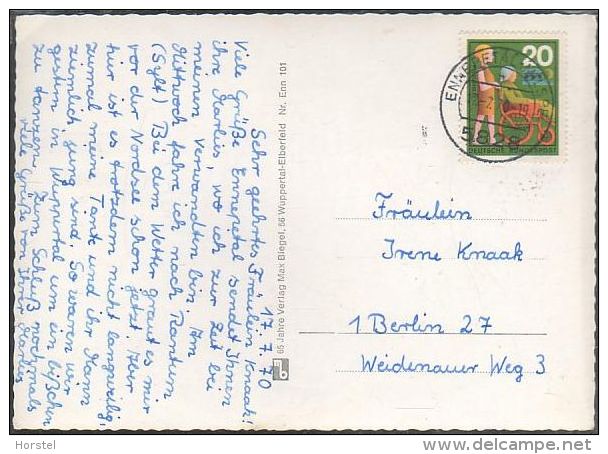 17.7.70
Sehr geehrtes Fräulein Knaak!
Viele Grüße Ennepetal sendet Ihnen
ihre Marlies, wo ich zur Zeit bei
meinen Verwandten bin. Am
Mittwoch fahre ich nach Rantum
(Sylt). Bei dem Wetter graut es mir
vor der Nordsee schon jetzt. Aber
hier ist es trotzdem nicht langweilig,
zumal meine Tante und ihr Mann
ziemlich jung sind. So waren wir
gestern in Wuppertal um ein bißchen
zu tanzen. Zum Schluß nochmals
viele Grüße von Ihrer Marlies
65 Jahre Verlag Max Biegel, 56 Wuppertal-Elberfeld Nr. Enn 101
20
DEUTSCHE BUNDESPOST
Fräulein
Irene Knaak
1 Berlin 27
Weidenauer Weg 3
Horstel
www.delcampe.net